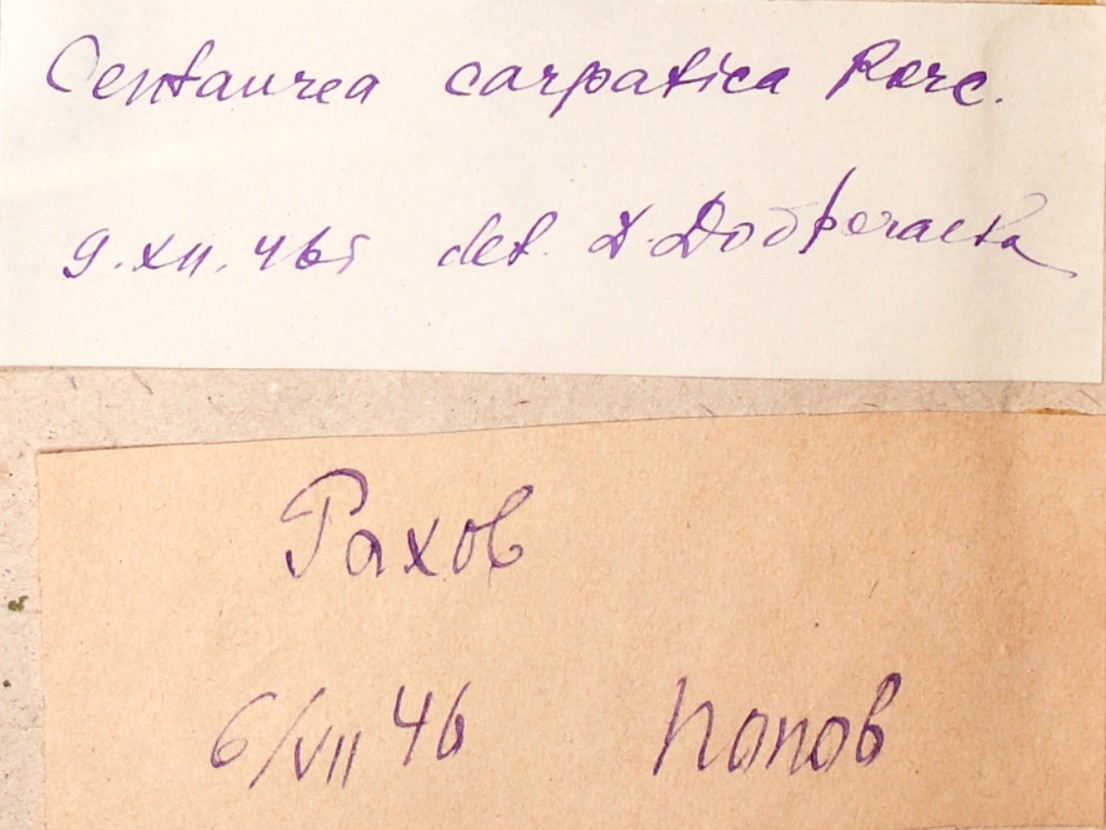 Centaurea carpatica Porc.
9.XII.46г det. Д. Доброчаева
Рахов
6/VII 46 Попов